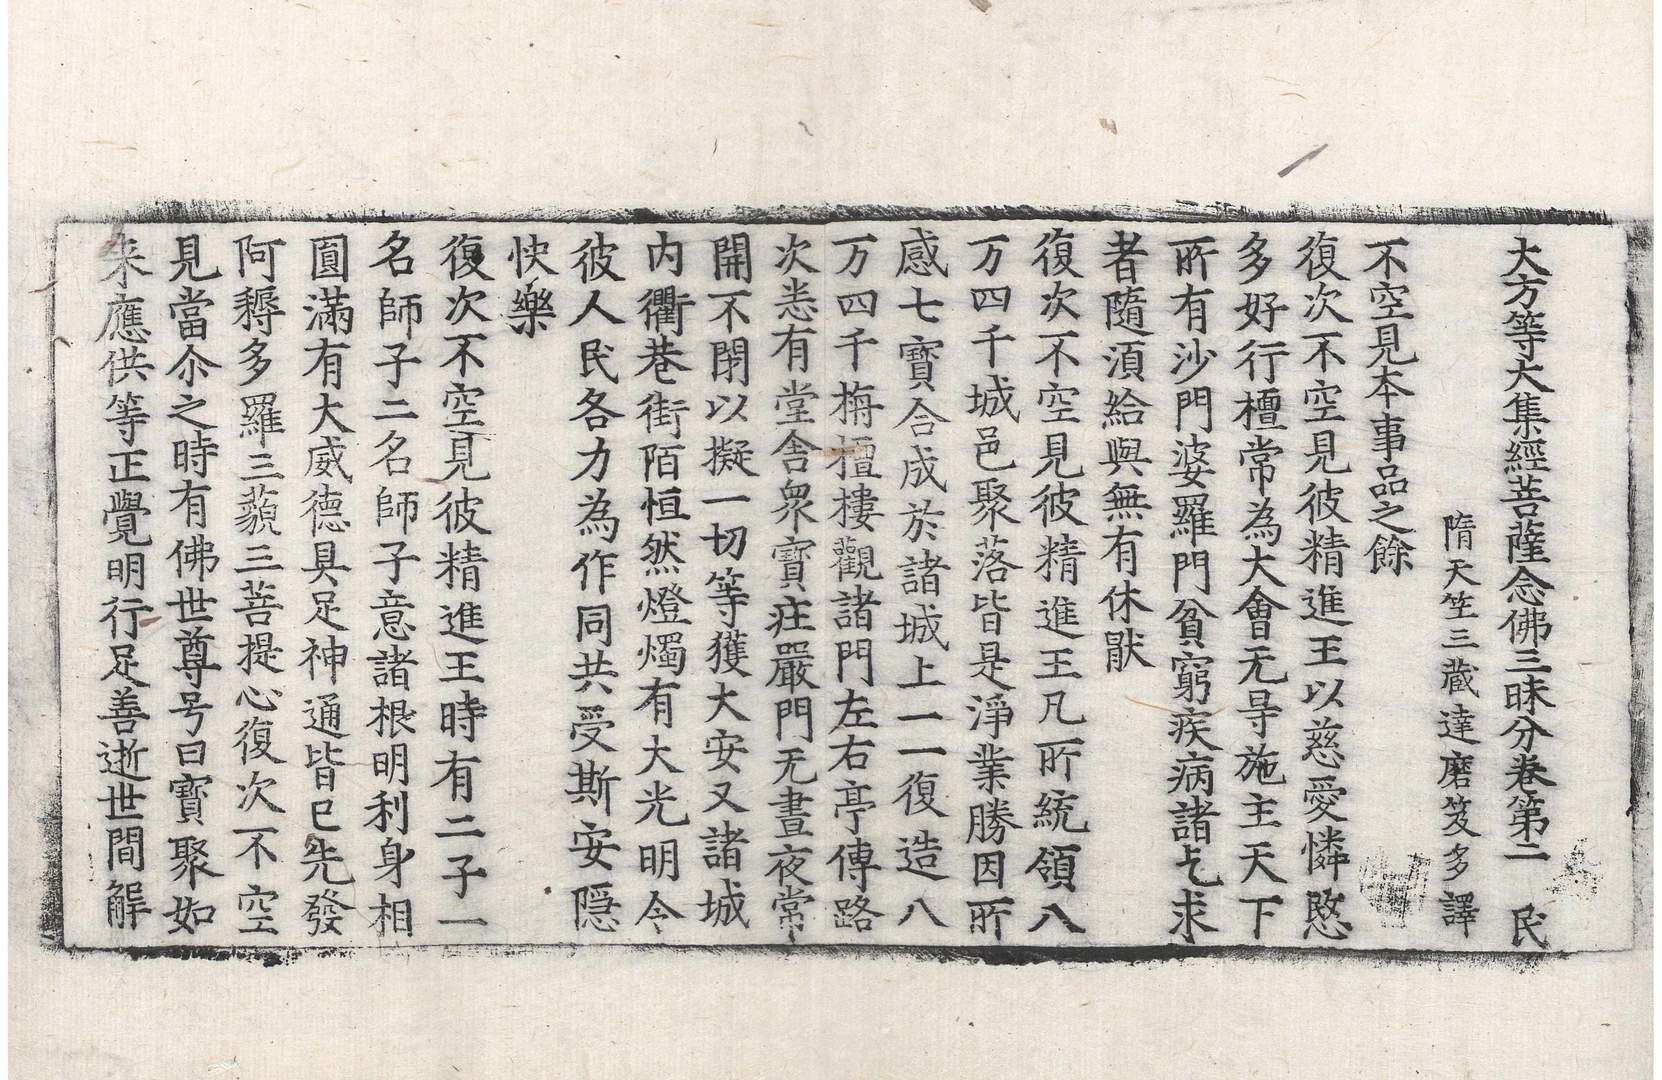 大方等大集經菩薩念佛三昧分卷第二　民
隋天竺三藏達磨笈多譯
不空見本事品之餘
復次不空見彼精進王以慈愛憐愍
多好行檀常為大會无㝵施主天下
所有沙門婆羅門貧窮疾病諸乞求
者隨湏給與無有休猒
復次不空見彼精進王凡所統領八
万四千城邑聚落皆是淨業勝因所
感七寶合成於諸城上一一復造八
万四千栴檀樓觀諸門左右亭傳路
次悉有堂舎衆寶㽵嚴門无晝夜常
開不閇以擬一切等獲大安又諸城
内衢巷街陌恒然燈燭有大光明令
彼人民各力為作同共受斯安隱
快樂
復次不空見彼精進王時有二子一
名師子二名師子意諸根明利身相
圎滿有大威德具足神通皆已先發
阿耨多羅三藐三菩提心復次不空
見當尒之時有佛世尊号曰寶聚如
来應供等正覺明行足善逝世間解